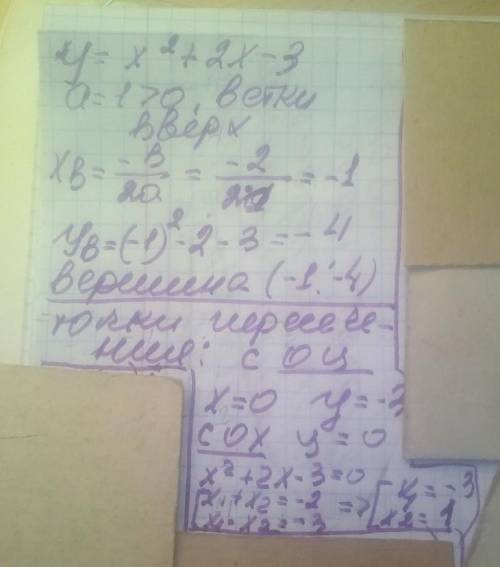 y = x² + 2x - 3
a = 1 > 0, ветки
вверх
xв = -в/2a = -2/2·1 = -1
yв = (-1)² - 2 - 3 = -4
вершина (-1; -4)
точки пересече-
ния: с оу
x = 0 y = -3
с ох y = 0
x² + 2x - 3 = 0
[x₁ + x₂ = -2 => [x₁ = -3
x₁ · x₂ = -3 x₂ = 1